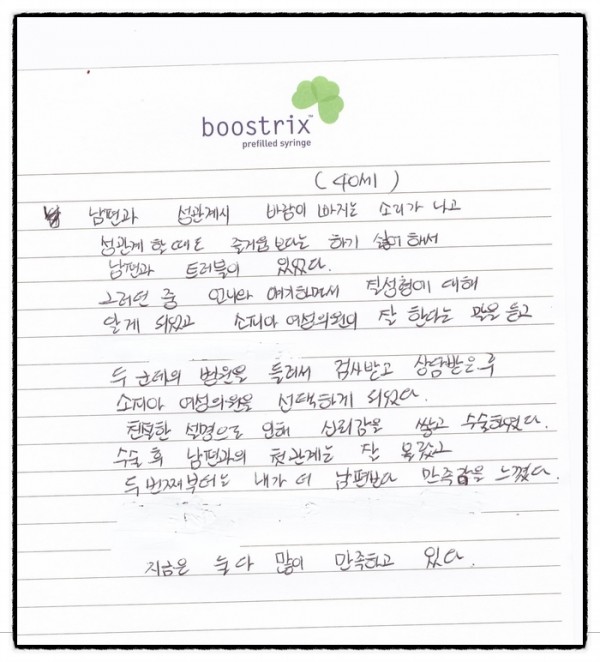 boostrix™
prefilled syringe
(40세)
남편과 성관계시 바람이 빠지는 소리가 나고
성관계 할때도 즐거움보다는 하기 싫어해서
남편과 트러블이 있었다.
그러던 중 언니와 얘기하면서 질성형에 대해
알게 되었고 소피아 여성의원이 잘 한다는 말을 듣고
두 군데의 병원을 들러서 검사받고 상담받은 후
소피아 여성의원을 선택하게 되었다.
친절한 설명으로 인해 신뢰감을 쌓고 수술하였다.
수술 후 남편과의 첫 관계는 잘 몰랐고
두 번째부터는 내가 더 남편보다 만족감을 느꼈다.
지금은 둘 다 많이 만족하고 있다.